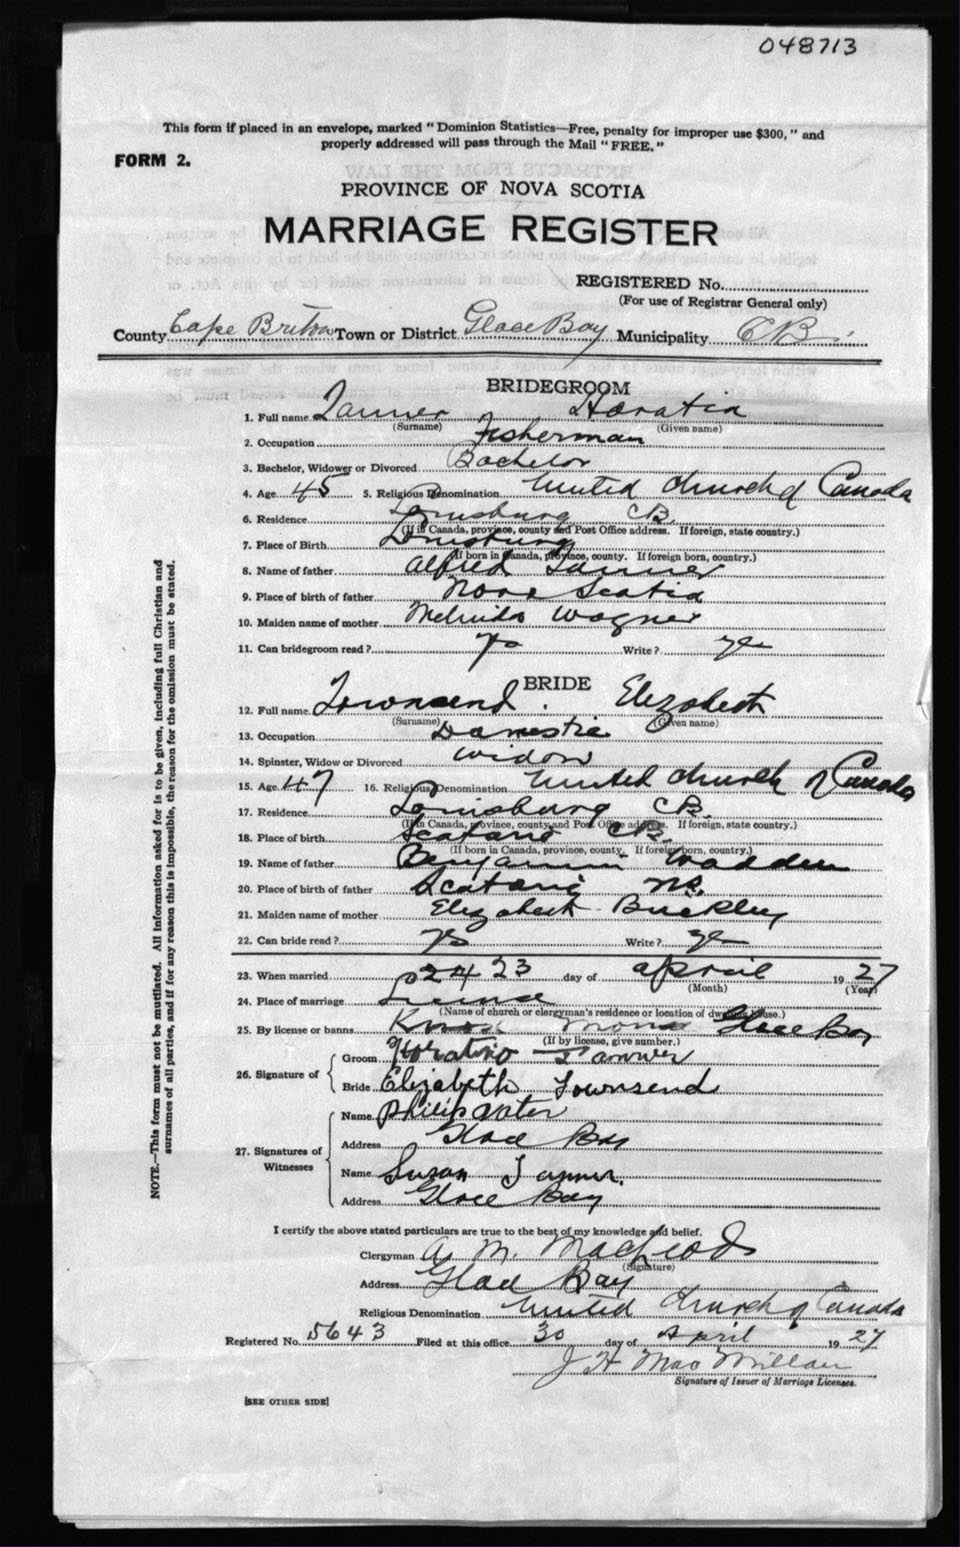 048713
This form if placed in an envelope, marked "Dominion Statistics—Free, penalty for improper use $300," and
properly addressed will pass through the Mail "FREE."
FORM 2.
PROVINCE OF NOVA SCOTIA
MARRIAGE REGISTER
REGISTERED No.
(For use of Registrar General only)
County Cape Briton Town or District Glace Bay Municipality C B
BRIDEGROOM
1. Full name Tanner Horatio
(Surname) (Given name)
2. Occupation Fisherman
3. Bachelor, Widower or Divorced Bachelor
4. Age 45 5. Religious Denomination United Church of Canada
6. Residence Louisburg CB.
(If in Canada, province, county and Post Office address. If foreign, state country.)
7. Place of Birth Louisburg
(If born in Canada, province, county. If foreign born, country.)
8. Name of father Alfred Tanner
9. Place of birth of father Nova Scotia
10. Maiden name of mother Melinda Wagner
11. Can bridegroom read? yes Write? yes
BRIDE
12. Full name Townsend. Elizabeth
(Surname) (Given name)
13. Occupation Domestic
14. Spinster, Widow or Divorced widow
15. Age 47 16. Religious Denomination United Church of Canada
17. Residence Louisburg CB.
(If in Canada, province, county and Post Office address. If foreign, state country.)
18. Place of birth Scatarie CB.
(If born in Canada, province, county. If foreign born, country.)
19. Name of father Benjamin Wadden
20. Place of birth of father Scatarie NS.
21. Maiden name of mother Elizabeth Buckley
22. Can bride read? yes Write? yes
23. When married 23 day of April 1927
(Month) (Year)
24. Place of marriage License
(Name of church or clergyman's residence or location of dwelling house.)
25. By license or banns Knox Glace Bay
(If by license, give number.)
26. Signature of Groom Horatio Tanner
Bride Elizabeth Townsend
27. Signatures of Witnesses
Name Philip
Address Glace Bay
Name Susan Tanner.
Address Glace Bay
I certify the above stated particulars are true to the best of my knowledge and belief.
Clergyman A. M. MacLeod
(Signature)
Address Glace Bay
Religious Denomination United Church of Canada
Registered No. 5643 Filed at this office 30 day of April 1927
J H MacMillan
Signature of Issuer of Marriage Licenses.
[SEE OTHER SIDE]
NOTE.—This form must not be mutilated. All information asked for is to be given, including full Christian and
surnames of all parties, and if for any reason this is impossible, the reason for the omission must be stated.